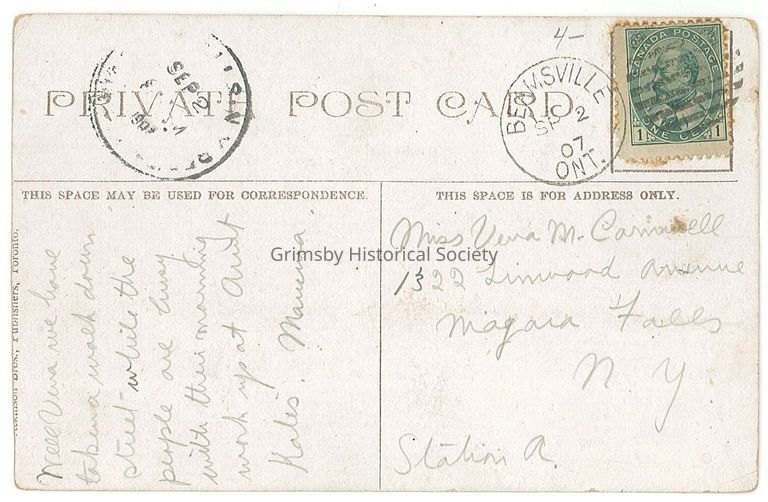 4-
PRIVATE POST CARD.
SEP 2
1907
BEAMSVILLE
SP 2
07
ONT.
CANADA POSTAGE
1 ONE CENT 1
THIS SPACE MAY BE USED FOR CORRESPONDENCE.
THIS SPACE IS FOR ADDRESS ONLY.
Grimsby Historical Society
Well Vera we have
taken a walk down
street while the
people are busy
with their morning
work up at Aunt
Kates. Mamma
Miss Vera M.
1322 Linwood Avenue
Niagara Falls
N. Y
Station A.
Bros., Publishers, Toronto.